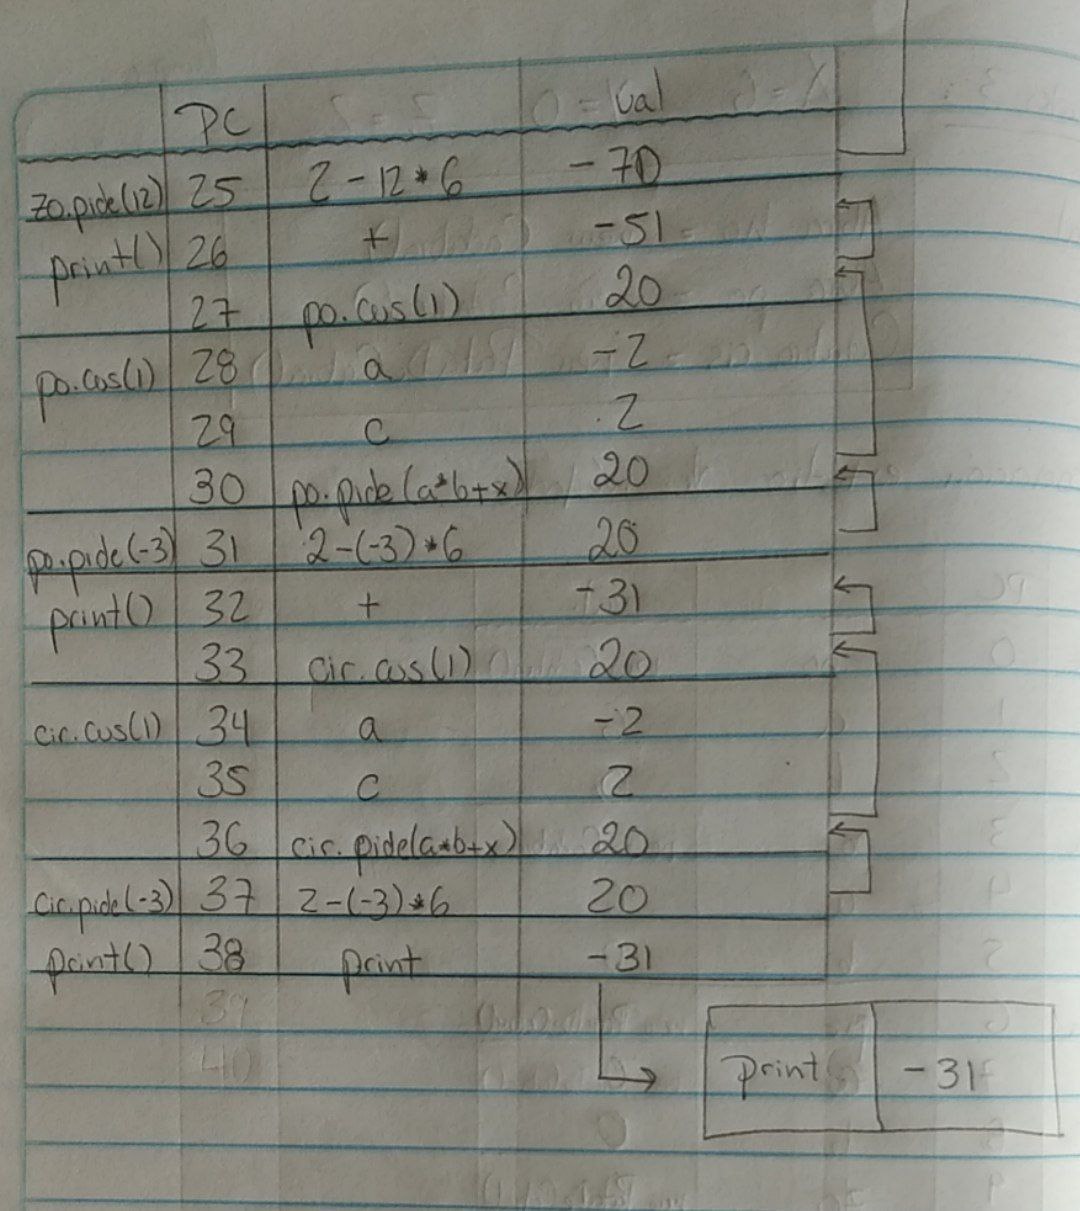 PC Val
zo.pide(12) 25 2 - 12 * 6 -70
print() 26 + -51
27 po.cus(1) 20
po.cus(1) 28 a -2
29 c 2
30 po.pide(a*b+x) 20
po.pide(-3) 31 2-(-3)*6 20
print() 32 + -31
33 cir.cus(1) 20
cir.cus(1) 34 a -2
35 c 2
36 cir.pide(a*b+x) 20
cir.pide(-3) 37 2-(-3)*6 20
print() 38 print -31
39
40
print -31